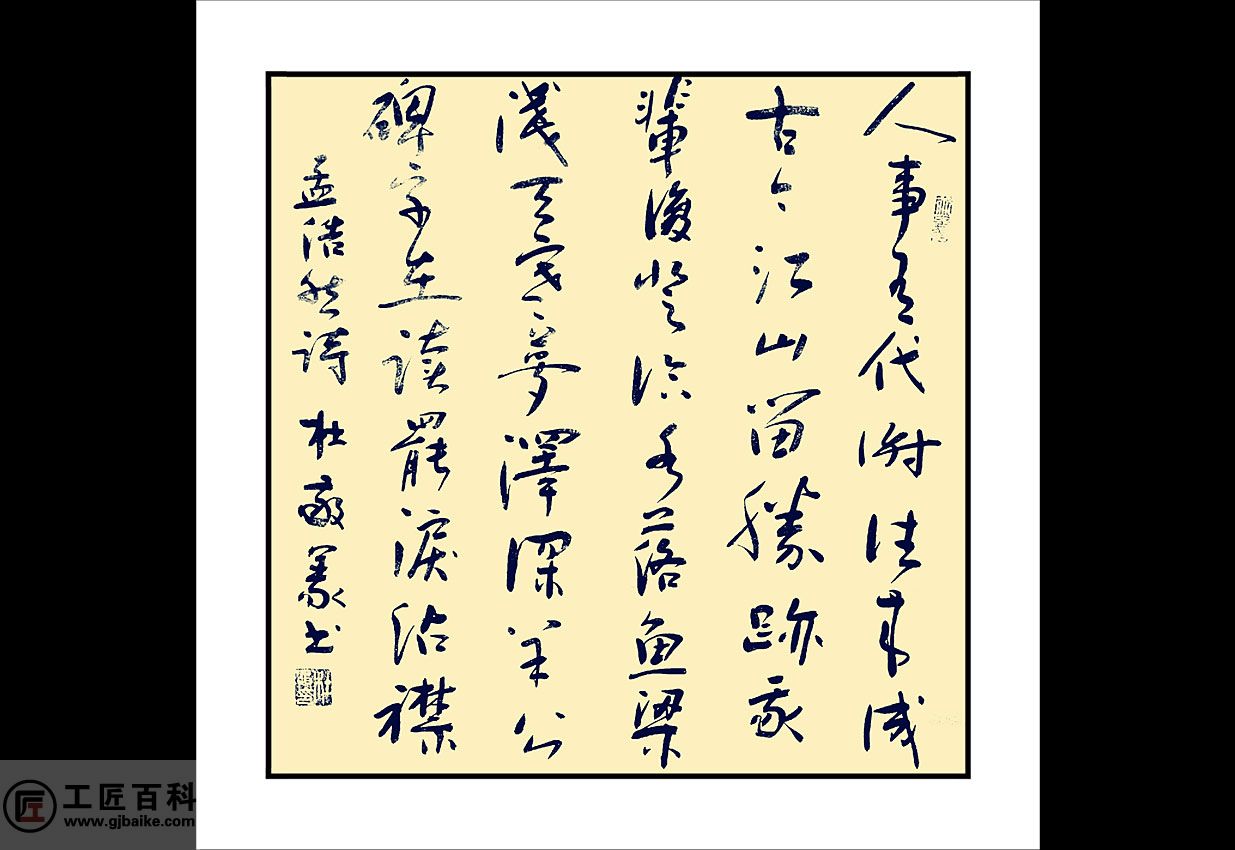 人事有代謝往來成
古今江山留勝跡我
輩復登臨水落魚梁
淺天寒夢澤深羊公
碑字在讀罷淚沾襟
孟浩然詩 杜敬義书
工匠百科
www.gjbaike.com
匠